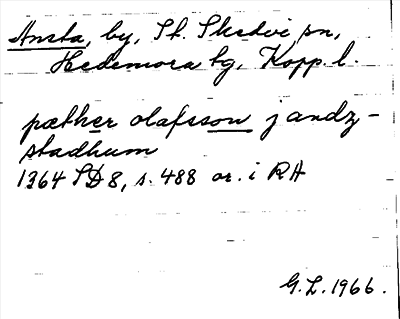 Ansta, by, St. Skedvi sn,
Hedemora tg, Kopp. l.
pæther olafsson j andz-
stadhum
1364 SD 8, s. 488 or. i RA
G.L. 1966.